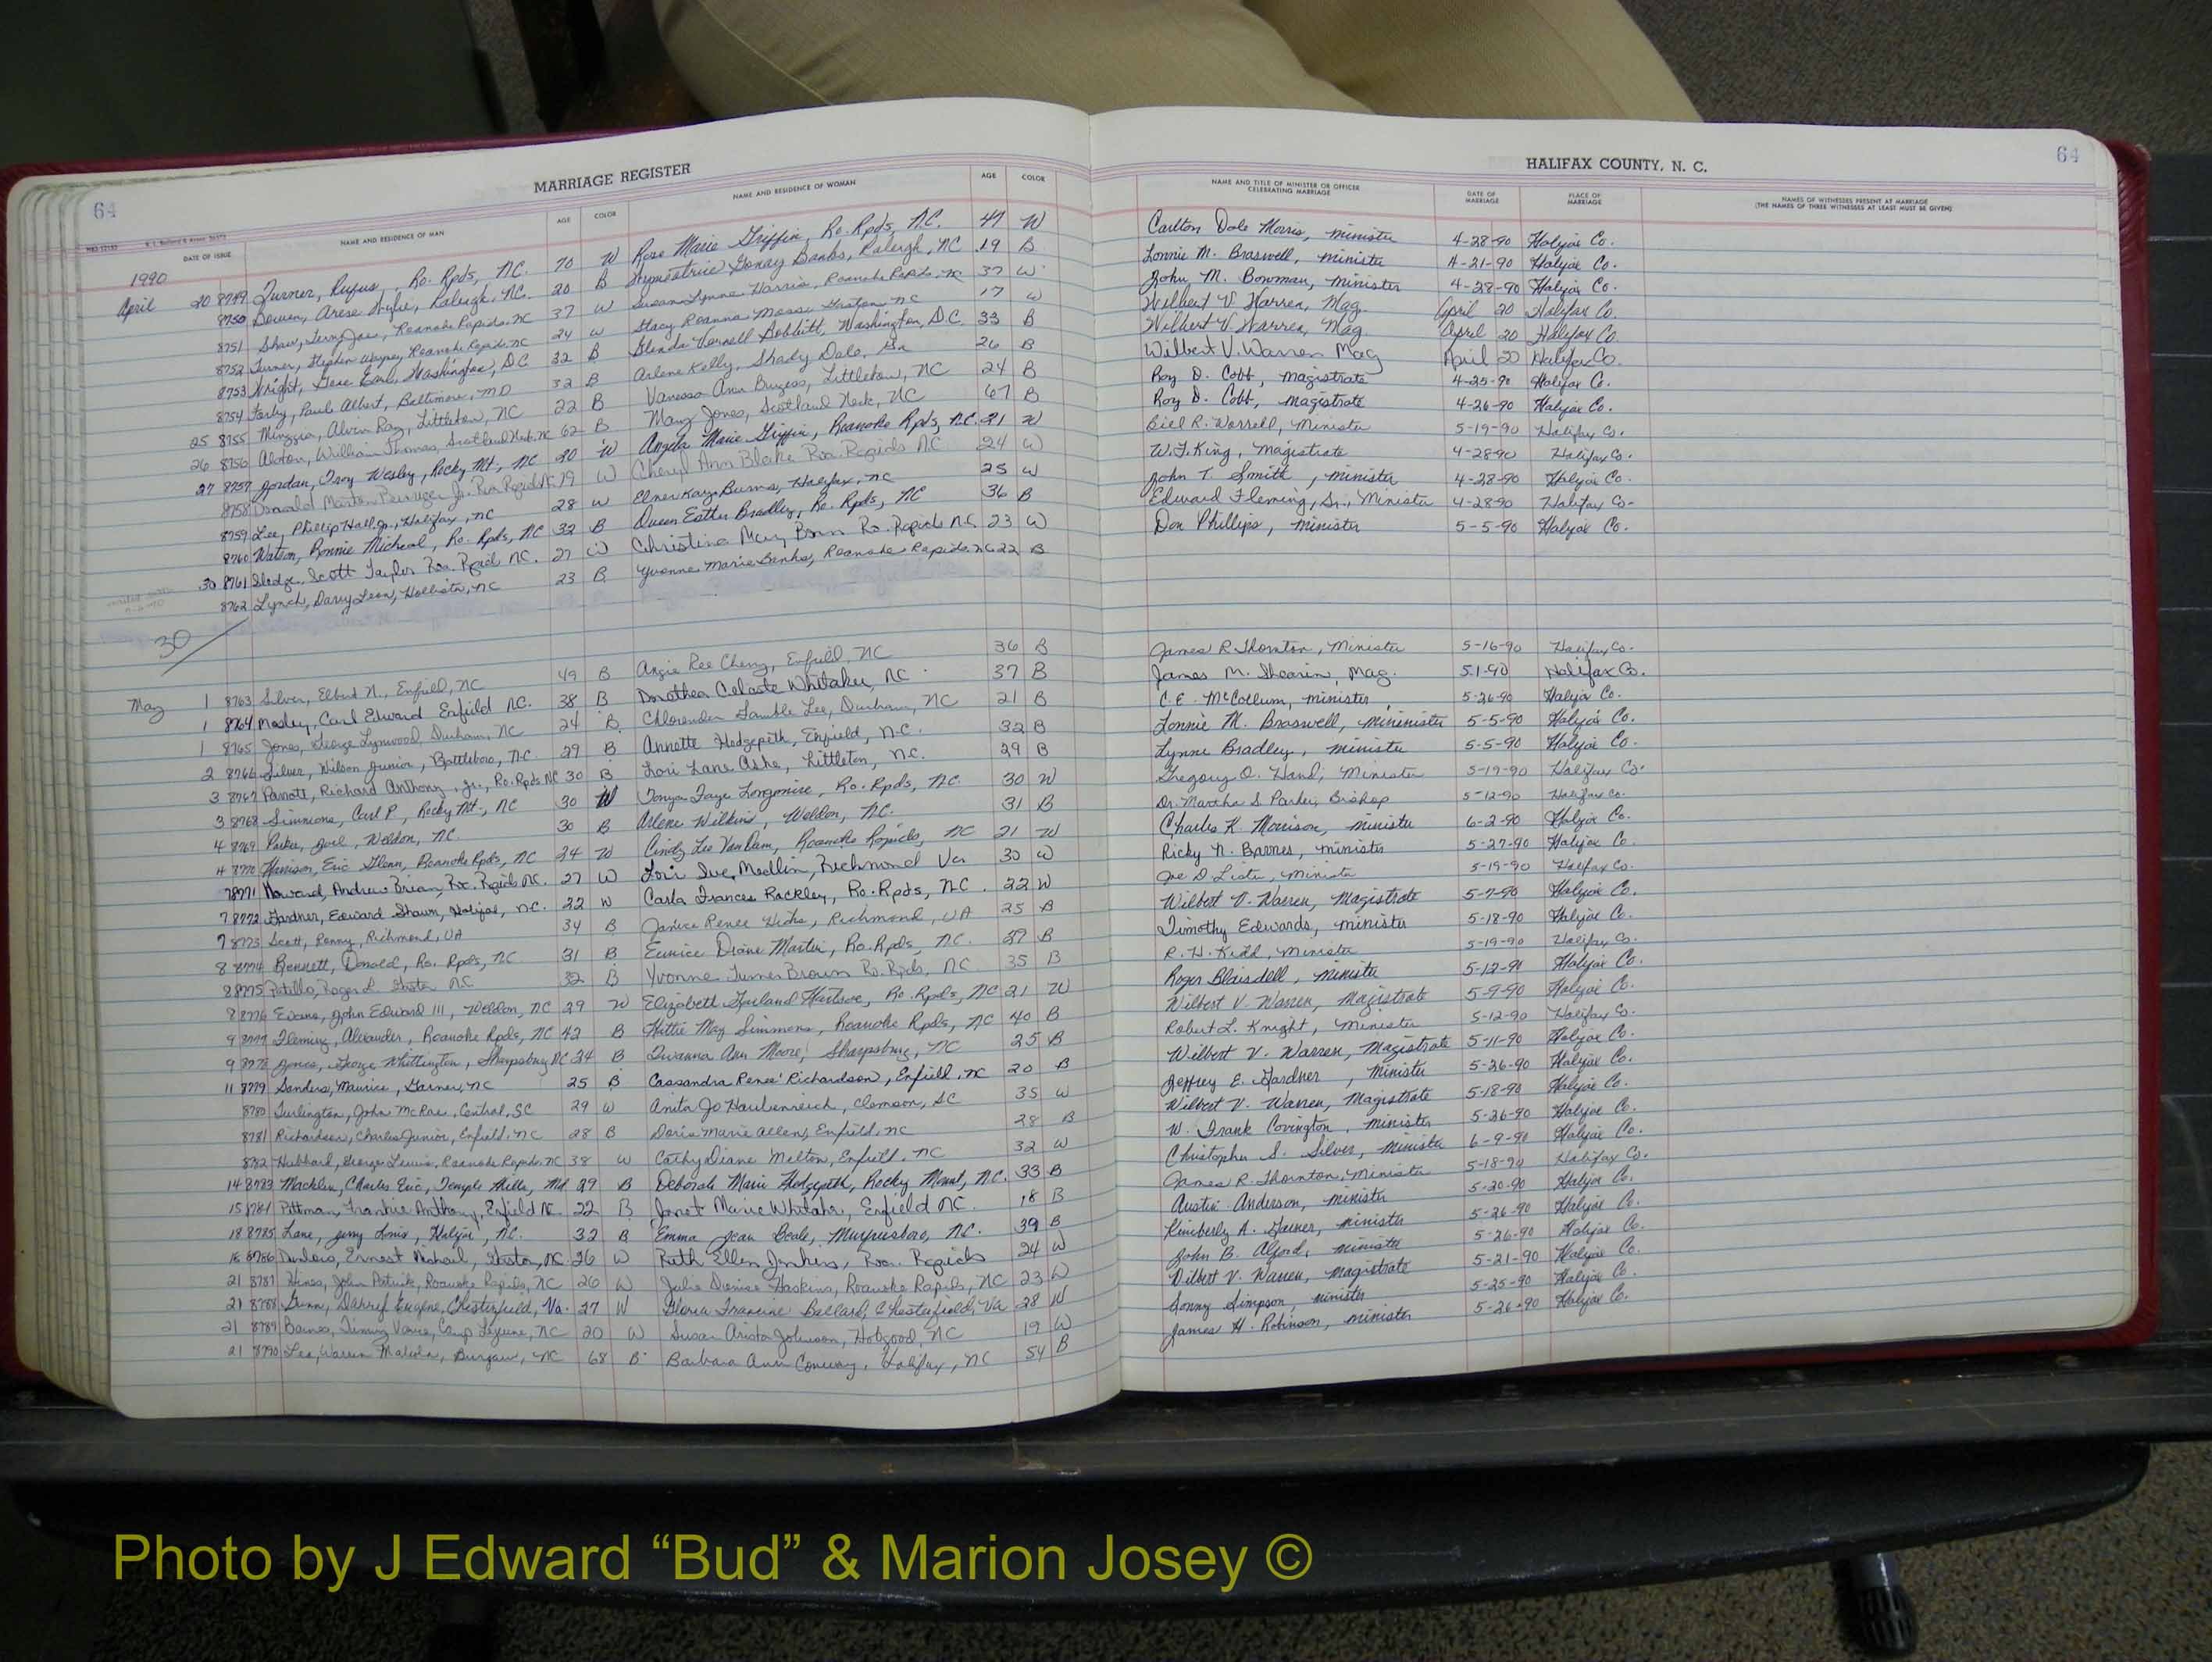 64
MARRIAGE REGISTER
HALIFAX COUNTY, N. C.
64
DATE OF ISSUE
NAME AND RESIDENCE OF MAN
AGE
COLOR
NAME AND RESIDENCE OF WOMAN
AGE
COLOR
NAME AND TITLE OF MINISTER OR OFFICER CELEBRATING MARRIAGE
DATE OF MARRIAGE
PLACE OF MARRIAGE
NAMES OF WITNESSES PRESENT AT MARRIAGE
(THE NAMES OF THREE WITNESSES AT LEAST MUST BE GIVEN)
1990
April 20 8749 Turner, Rufus, Ro. Rpds, N.C. 70 W Rose Marie Griffin, Ro. Rpds, N.C. 47 W Carlton Dale Morris, minister 4-28-90 Halifax Co.
8750 Raleigh, NC. 20 B Banks, Raleigh, NC 19 B Lonnie M. Braswell, minister 4-21-90 Halifax Co.
8751 Shaw, Roanoke Rapids, NC 37 W Susan Lynne Harris, Roanoke Rapids, NC 37 W John M. Bowman, minister 4-28-90 Halifax Co.
8752 Turner, Stephen Wayne, Roanoke Rapids, NC 24 W Stacy Reanna Gaston, NC 17 W Wilbert V. Warren, Mag. April 20 Halifax Co.
8753 Wright, Gene Earl, Washington, DC 32 B Glenda Vernell Bobbitt, Washington, D.C. 33 B Wilbert V. Warren, Mag April 20 Halifax Co.
8754 Farley, Paul Albert, Baltimore, MD 32 B Arlene Kelly, Shady Dale, Ga 26 B Wilbert V. Warren Mag April 20 Halifax Co.
25 8755 Alvin Ray, Littleton, NC 22 B Vanessa Ann Burgess, Littleton, NC 24 B Roy D. Cobb, magistrate 4-25-90 Halifax Co.
26 8756 Alston, William Thomas, Scotland Neck, NC 62 B Mary Jones, Scotland Neck, NC 67 B Roy D. Cobb, magistrate 4-26-90 Halifax Co.
27 8757 Jordan, Troy Wesley, Rocky Mt., NC 20 W Angela Marie Griffin, Roanoke Rpds, N.C. 21 W Biel R. Worrell, Minister 5-19-90 Halifax Co.
8758 Donald Roa Rapids NC 19 W Cheryl Ann Blake Roa. Rapids NC 24 W W.T. King, Magistrate 4-28-90 Halifax Co.
8759 Lee, Phillip Hall Jr., Halifax, NC 28 W Elner Kaye Burns, Halifax, NC 25 W John T. Smith, minister 4-28-90 Halifax Co.
8760 Watson, Ronnie Micheal, Ro. Rpds, NC 32 B Queen Esther Bradley, Ro. Rpds, NC 36 B Edward Fleming, Sr., Minister 4-28-90 Halifax Co.
30 8761 Sledge, Scott Taylor Roa. Rapid NC. 27 W Christina May Ro. Rapids N.C. 23 W Don Phillips, minister 5-5-90 Halifax Co.
8762 Lynch, Darry Leon, Hollister, NC 23 B Yvonne Marie Banks, Roanoke Rapids, NC 22 B
30
May 1 8763 Silver, Elbert N., Enfield, NC 49 B Angie Ree Cherry, Enfield, NC 36 B James R. Thornton, Minister 5-16-90 Halifax Co.
1 8764 Mosley, Carl Edward Enfield NC. 38 B Dorothea Celeste Whitaker, NC. 37 B James M. Shearin, Mag. 5-1-90 Halifax Co.
1 8765 Jones, George Lynwood, Durham, NC 24 B Lee, Durham, NC 21 B C.E. McCollum, minister, 5-26-90 Halifax Co.
2 8766 Silver, Wilson Junior, Battleboro, N.C. 29 B Annette Hedgepeth, Enfield, N.C. 32 B Lonnie M. Braswell, mininister 5-5-90 Halifax Co.
3 8767 Parrott, Richard Anthony, Jr., Ro. Rpds NC 30 B Lori Lane Ashe, Littleton, N.C. 29 B Lynne Bradley, minister 5-5-90 Halifax Co.
3 8768 Simmons, Carl P., Rocky Mt., NC 30 W Tonya Faye Longmire, Ro. Rpds, N.C. 30 W Gregory O. Hand, Minister 5-19-90 Halifax Co.
4 8769 Parker, Joel, Weldon, NC. 30 B Arlene Wilkins, Weldon, N.C. 31 B Dr. Martha S. Parker, Bishop 5-12-90 Halifax Co.
4 8770 Harrison, Eric Glenn, Roanoke Rpds, NC 24 W Cindy Lee Van Dam, Roanoke Rapids, NC 21 W Charles K. Morrison, minister 6-2-90 Halifax Co.
7 8771 Howard, Andrew Brian, Ro. Rapids NC. 27 W Lori Sue Medlin, Richmond Va 30 W Ricky N. Barnes, minister 5-27-90 Halifax Co.
7 8772 Gardner, Edward Shawn, Halifax, NC. 22 W Carla Frances Rackley, Ro. Rpds, N.C. 22 W Joe D. Minister 5-19-90 Halifax Co.
7 8773 Scott, Ronny, Richmond, VA 34 B Janice Renee Hicks, Richmond, VA 25 B Wilbert V. Warren, Magistrate 5-7-90 Halifax Co.
8 8774 Bennett, Donald, Ro. Rpds, NC. 31 B Eunice Diane Martin, Ro. Rpds, NC. 27 B Timothy Edwards, minister 5-18-90 Halifax Co.
8 8775 Patillo, Roger L. Gaston NC 32 B Yvonne Turner Brown Ro. Rpds, NC. 35 B R. H. Kidd, Minister 5-19-90 Halifax Co.
8 8776 Evans, John Edward III, Weldon, NC 29 W Elizabeth Garland Ro. Rpds, NC 21 W Roger Blaisdell, minister 5-12-90 Halifax Co.
9 8777 Fleming, Alexander, Roanoke Rpds, NC 42 B Hattie May Simmons, Roanoke Rpds, NC 40 B Wilbert V. Warren, Magistrate 5-9-90 Halifax Co.
9 8778 Jones, George Whittington, Sharpsburg NC 24 B Dwanna Ann Moore, Sharpsburg, NC 25 B Robert L. Knight, Minister 5-12-90 Halifax Co.
11 8779 Sanders, Maurice, Garner, NC 25 B Cassandra Renee' Richardson, Enfield, NC 20 B Wilbert V. Warren, Magistrate 5-11-90 Halifax Co.
8780 Turlington, John McRae, Central, SC 29 W Anita Jo Haubenreich, Clemson, SC 35 W Jeffrey E. Gardner, Minister 5-26-90 Halifax Co.
8781 Richardson, Charles Junior, Enfield, NC 28 B Doris Marie Allen, Enfield, NC 28 B Wilbert V. Warren, Magistrate 5-18-90 Halifax Co.
8782 Hubbard, George Lewis, Roanoke Rapids, NC 38 W Cathy Diane Melton, Enfield, NC 32 W W. Frank Covington, minister 5-26-90 Halifax Co.
14 8783 Macklin, Charles Eric, Temple Hills, Md. 29 B Deborah Marie Hedgepeth, Rocky Mount, NC. 33 B Christopher S. Silver, minister 6-9-90 Halifax Co.
15 8784 Pittman, Frankie Anthony, Enfield NC 22 B Janet Marie Whitaker, Enfield NC. 18 B James R. Thornton, Minister 5-18-90 Halifax Co.
18 8785 Lane, Jerry Louis, Halifax, NC. 32 B Emma Jean Beale, Murfreesboro, NC. 39 B Austin Anderson, minister 5-20-90 Halifax Co.
18 8786 Ernest Michail, Gaston, NC. 26 W Ruth Ellen Jenkins, Roa. Rapids 24 W Kimberly A. minister 5-26-90 Halifax Co.
21 8787 Hines, John Patrick, Roanoke Rapids, NC 26 W Julie Denise Haskins, Roanoke Rapids, NC 23 W John B. Alford, minister 5-26-90 Halifax Co.
21 8788 Gunn, Darryl Eugene, Chesterfield, Va. 27 W Gloria Francine Ballard, Chesterfield, Va 28 W Wilbert V. Warren, magistrate 5-21-90 Halifax Co.
21 8789 Barnes, Timmy Vance, Camp Lejeune, NC 20 W Susan Arista Johnson, Hobgood, NC 19 W Sonny Simpson, minister 5-25-90 Halifax Co.
21 8790 Lee, Warren Malcolm, Burgaw, NC 68 B Barbara Ann Conway, Halifax, NC 54 B James H. Robinson, minister 5-26-90 Halifax Co.
Photo by J Edward “Bud” & Marion Josey ©